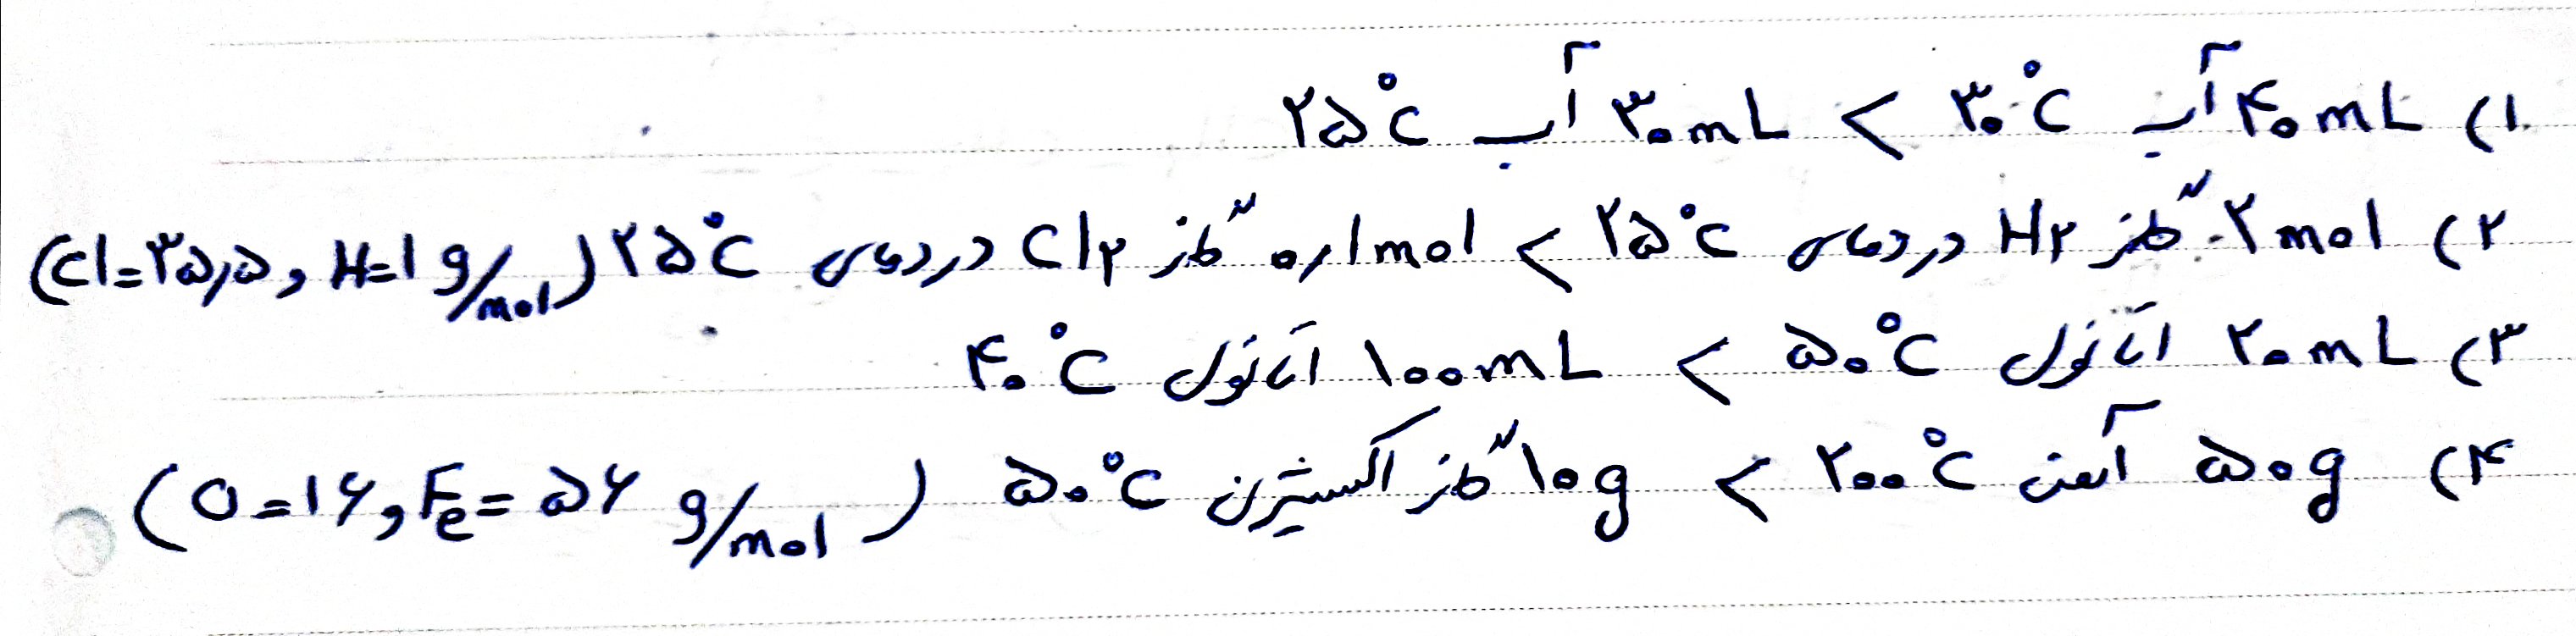 ۱) ۴۰mL آب ۳۰°C > ۳۰mL آب ۲۵°C
۲) ۲mol گاز H۲ در دمای ۲۵°C > ۰٫۱mol گاز Cl۲ در دمای ۲۵°C (Cl=۳۵٫۵ و H=۱ g/mol)
۳) ۲۰mL اتانول ۵۰°C > ۱۰۰mL اتانول ۴۰°C
۴) ۵۰g آهن ۲۰۰°C > ۱۰g گاز اکسیژن ۵۰°C (O=۱۶ و Fe=۵۶ g/mol)